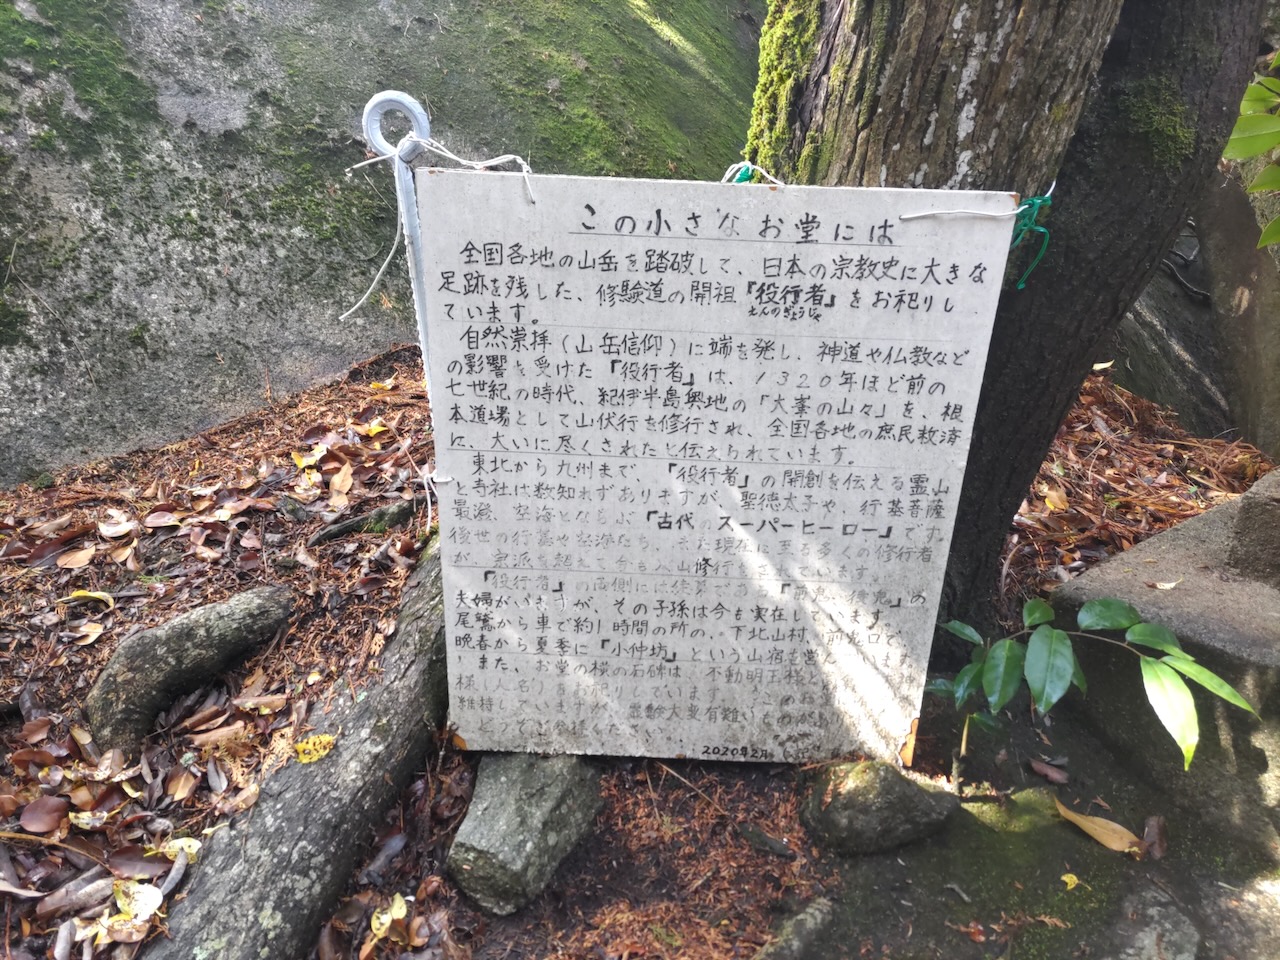 この小さなお堂には
全国各地の山岳を踏破して、日本の宗教史に大きな
足跡を残した、修験道の開祖『役行者』をお祀りし
えんのぎょうじゃ
ています。
自然崇拝(山岳信仰)に端を発し、神道や仏教など
の影響を受けた『役行者』は、1320年ほど前の
七世紀の時代、紀伊半島奥地の「大峯の山々」を、根
本道場として山伏行を修行され、全国各地の庶民救済
に、大いに尽くされたと伝えられています。
東北から九州まで、『役行者』の開創を伝える霊山
と寺社は数知れずありますが、聖徳太子や、行基菩薩
最澄、空海とならぶ『古代のスーパーヒーロー』です。
後世の行基や空海たち、また現在に至る多くの修行者
が、宗派を超えて今も入山修行をされています。
『役行者』の両側には後鬼』の
夫婦がいますが、その子孫は今も実在しています。
尾鷲から車で約1時間の所の、下北山村、前鬼口で、
晩春から夏季に『小仲坊』という山宿を営んでいます。
また、お堂の横の石碑は、不動明王様と
様(人名)をお祀りしています。この
維持していますが、霊験大変有難いものがあり
どうぞお参りください。
2020年2月